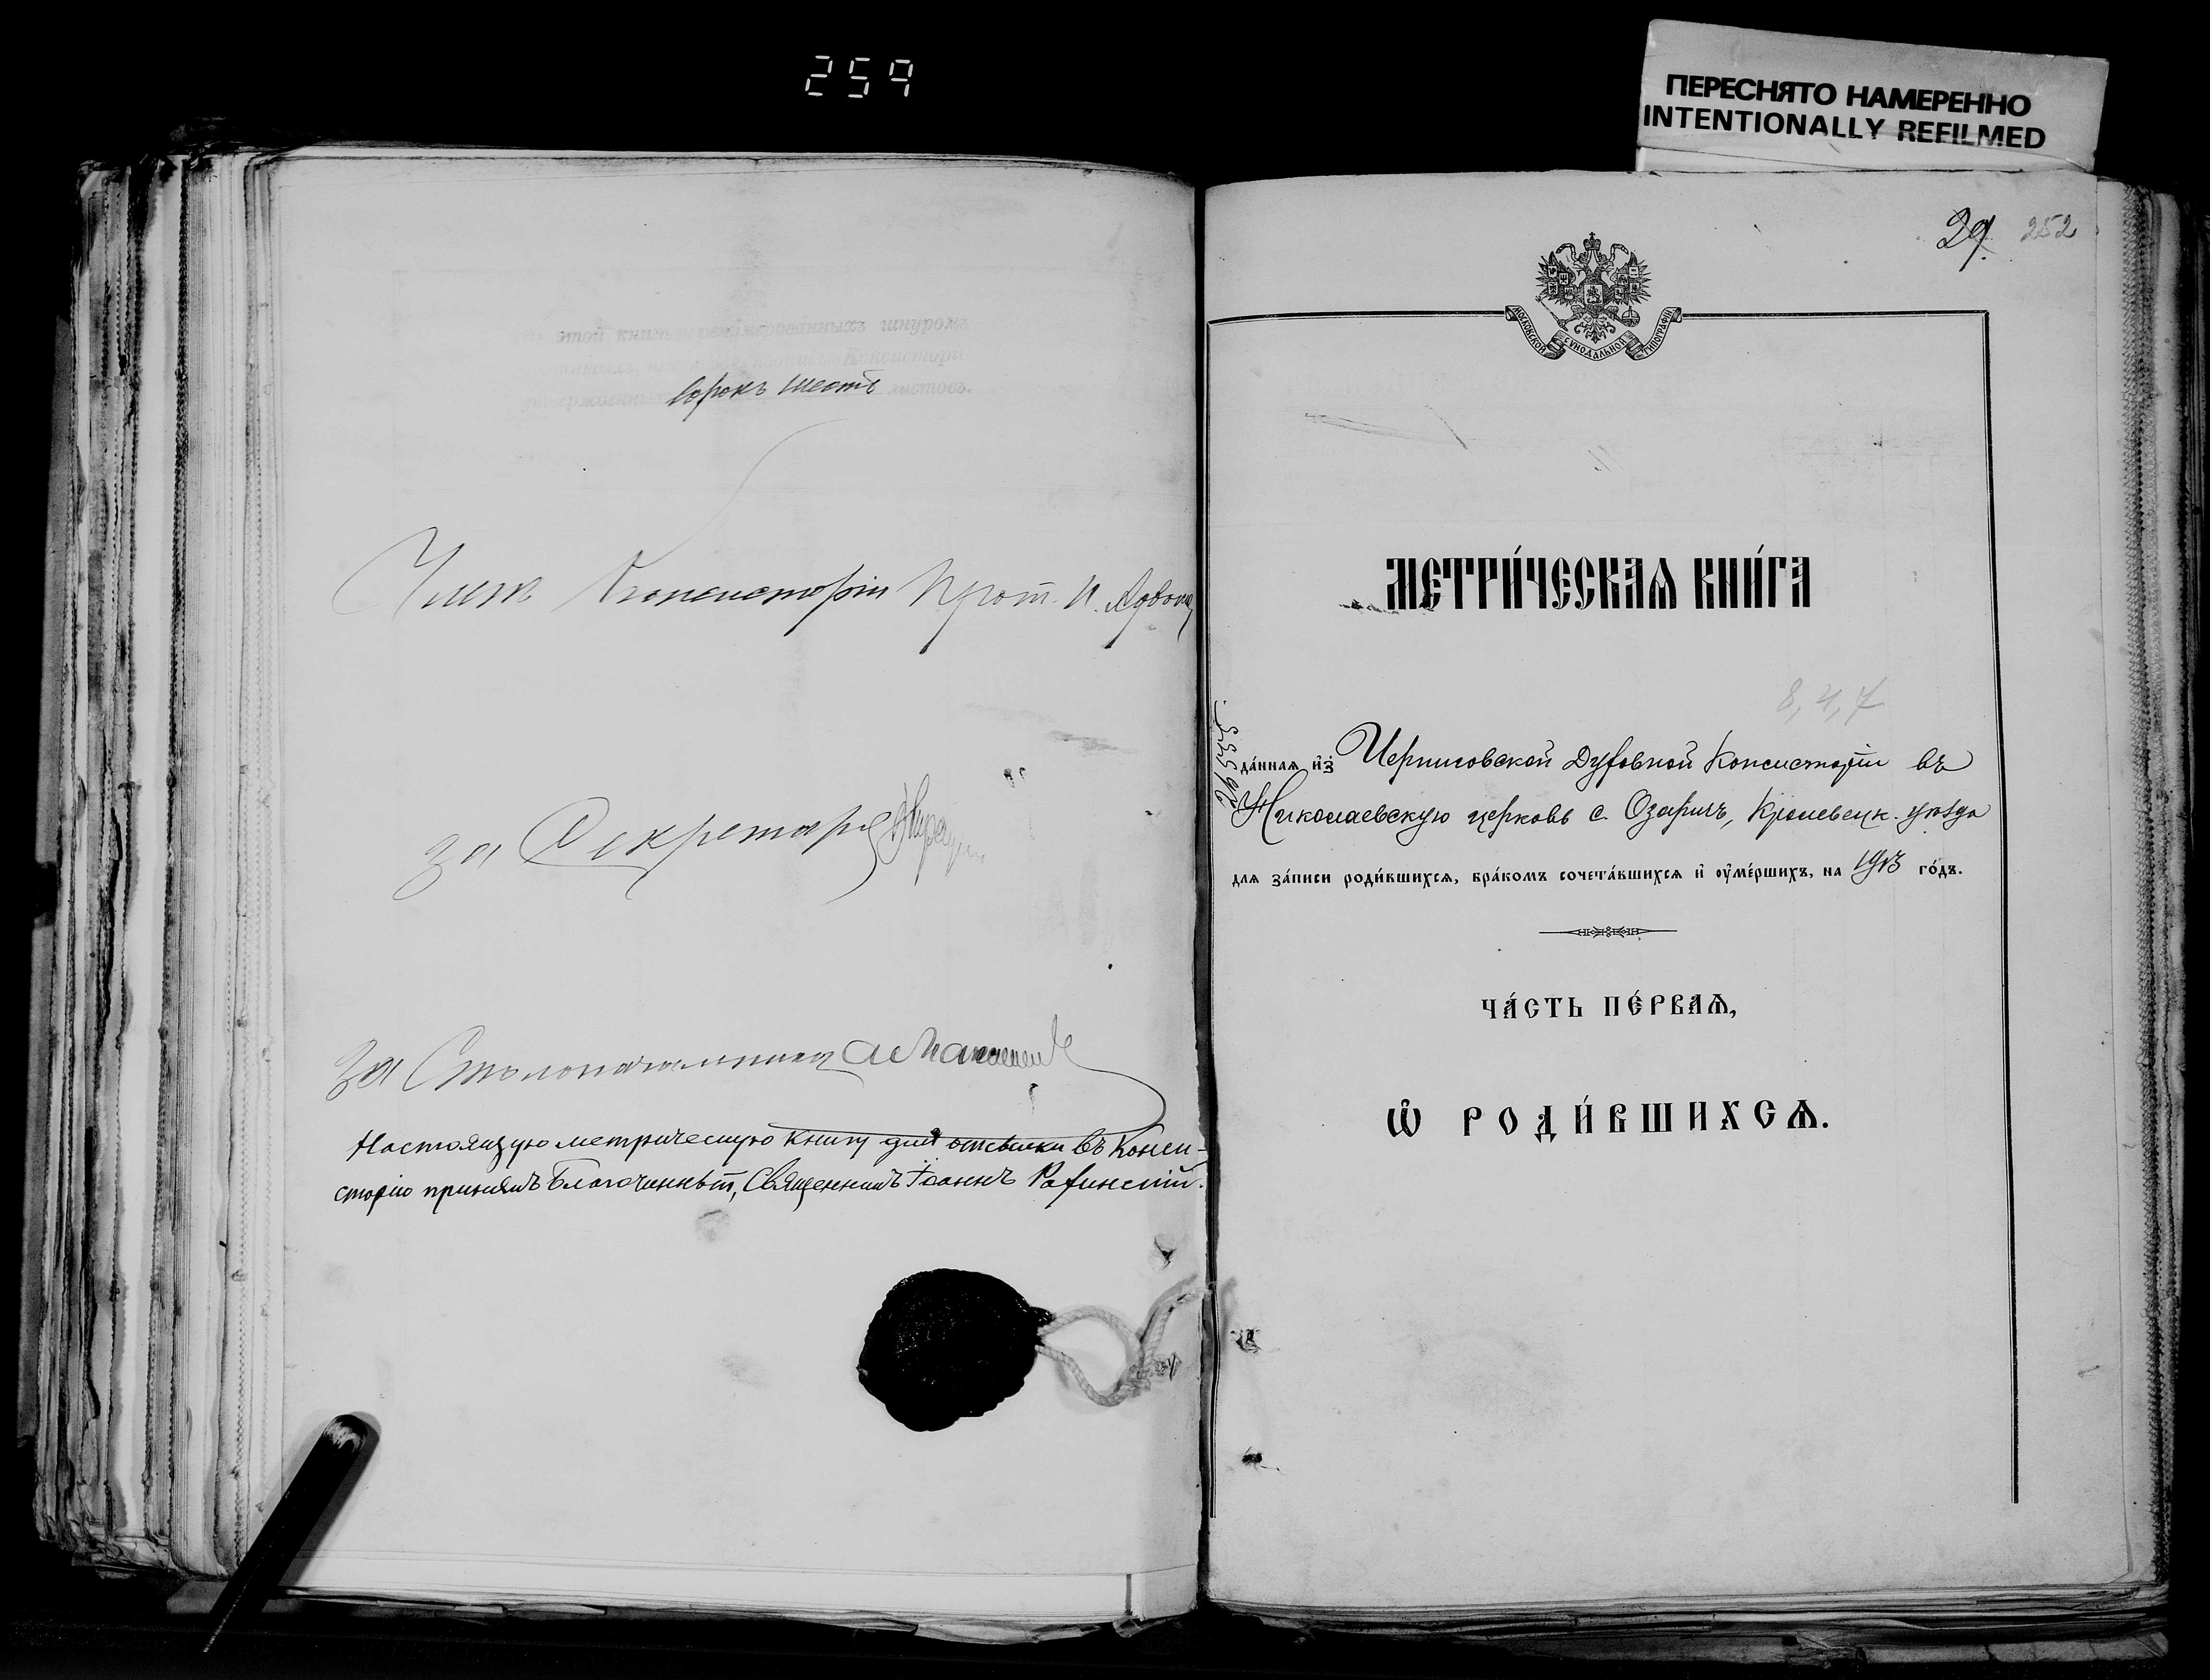 259
ПЕРЕСНЯТО НАМЕРЕННО
INTENTIONALLY REFILMED
этой книгѣ шнуромъ
листовъ.
Сорокъ шесть
Членъ Консисторіи Прот. И.
За Секретаря
За Столоначальника
Настоящую метрическую книгу для отсылки въ Конси-
сторію принялъ Благочинный, Священникъ Іоаннъ
29. 252
МОСКОВСКОЙ СѴНОДАЛЬНОЙ ТИПОГРАФІИ
МЕТРИ́ЧЕСКАѦ КНИ́ГА
8, 4, 7
да́ннаѧ и҆з̾ Черниговской Духовной Консисторіи въ
Николаевскую церковь с. Озаричъ, Кролевецк. уѣзда
длѧ за́писи роди́вшихсѧ, бра́комъ сочета́вшихсѧ и҆ ѹ҆ме́ршихъ, на 1913 го́дъ.
ЧА́СТЬ ПЕ́РВАѦ,
Ѽ РОДИ́ВШИХСѦ.